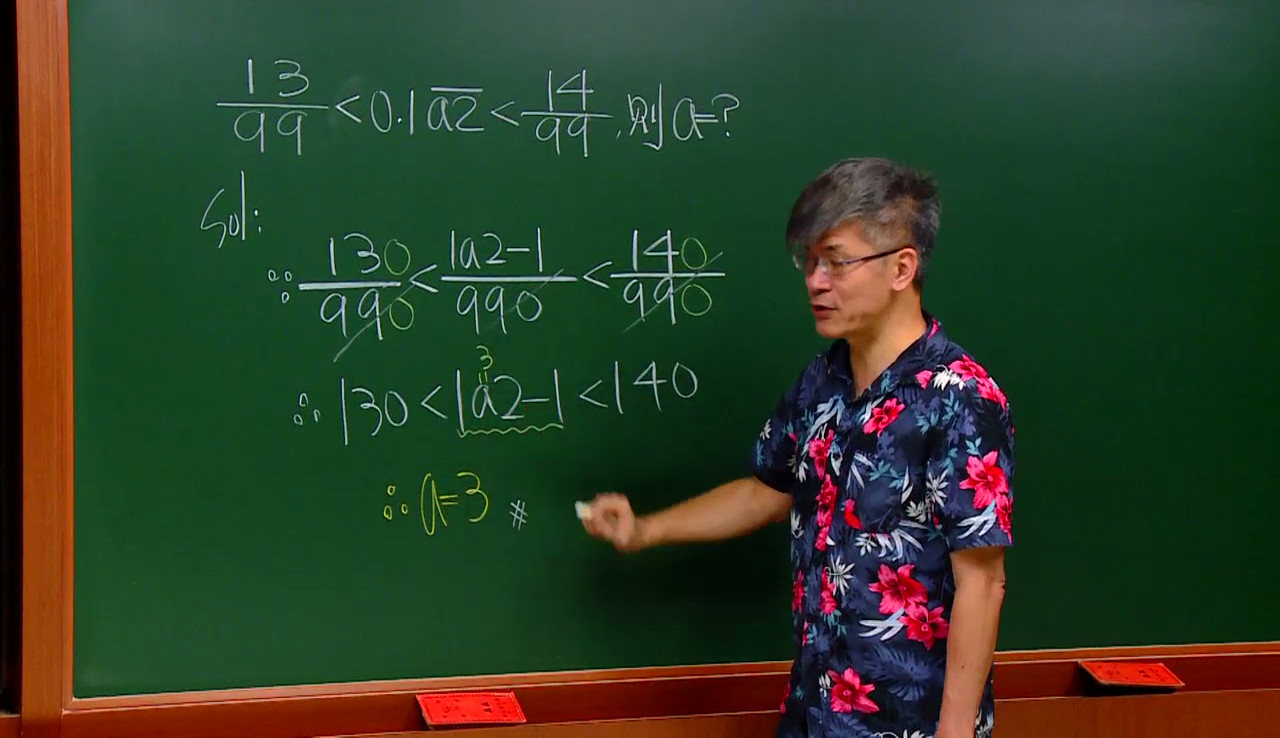 13/99 < 0.1a̅2̅ < 14/99, 则 a=?
Sol:
∵ 130/990 < 1a2-1/990 < 140/990
3
∴ 130 < 1a2-1 < 140
∴ a=3 #